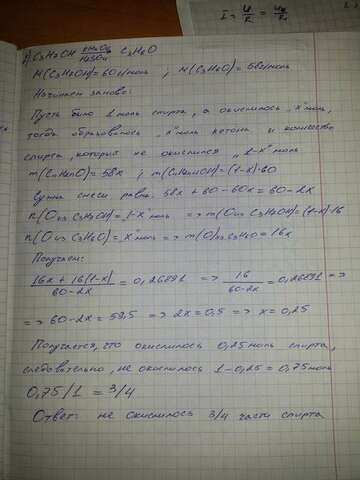 I = U/R = U₀/R
C₃H₇OH KMnO₄/H₂SO₄ → C₃H₆O
M(C₃H₇OH) = 60 г/моль ; M(C₃H₆O) = 58 г/моль
Начинаем заново:
Пусть было 1 моль спирта, а окислилось "x" моль,
тогда образовалось "x" моль кетона и количество
спирта, который не окислился "1-x" моль
m(C₃H₆O) = 58x ; m(C₃H₇OH) = (1-x)·60
Сумма смеси равна: 58x + 60 - 60x = 60 - 2x
n(O из C₃H₇OH) = 1-x моль => m(O из C₃H₇OH) = (1-x)·16
n(O из C₃H₆O) = "x" моль => m(O) из C₃H₆O = 16x
Получаем:
16x + 16(1-x) / 60-2x = 0,26891 => 16 / 60-2x = 0,26891 =>
=> 60-2x = 59,5 => 2x = 0,5 => x = 0,25
Получается, что окислилось 0,25 моль спирта,
следовательно, не окислилось 1 - 0,25 = 0,75 моль
0,75/1 = 3/4
Ответ: не окислилось 3/4 части спирта